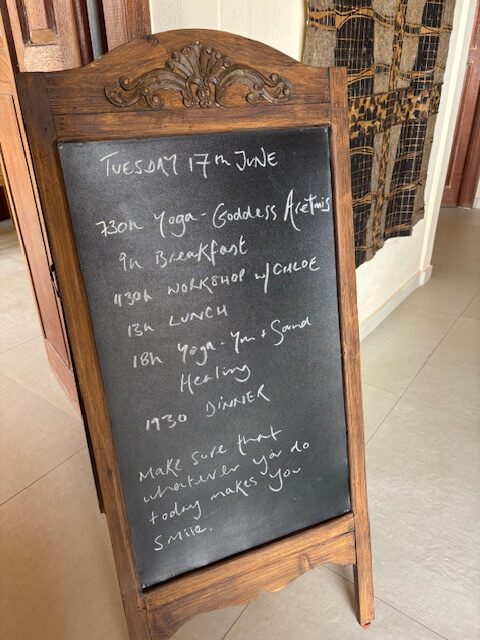 TUESDAY 17th JUNE
730h Yoga - Goddess Aretmis
9h Breakfast
1130h WORKSHOP w/ CHLOE
13h LUNCH
18h Yoga - Yin + Sound
Healing
1930 DINNER
Make sure that
whatever you do
today makes you
smile.